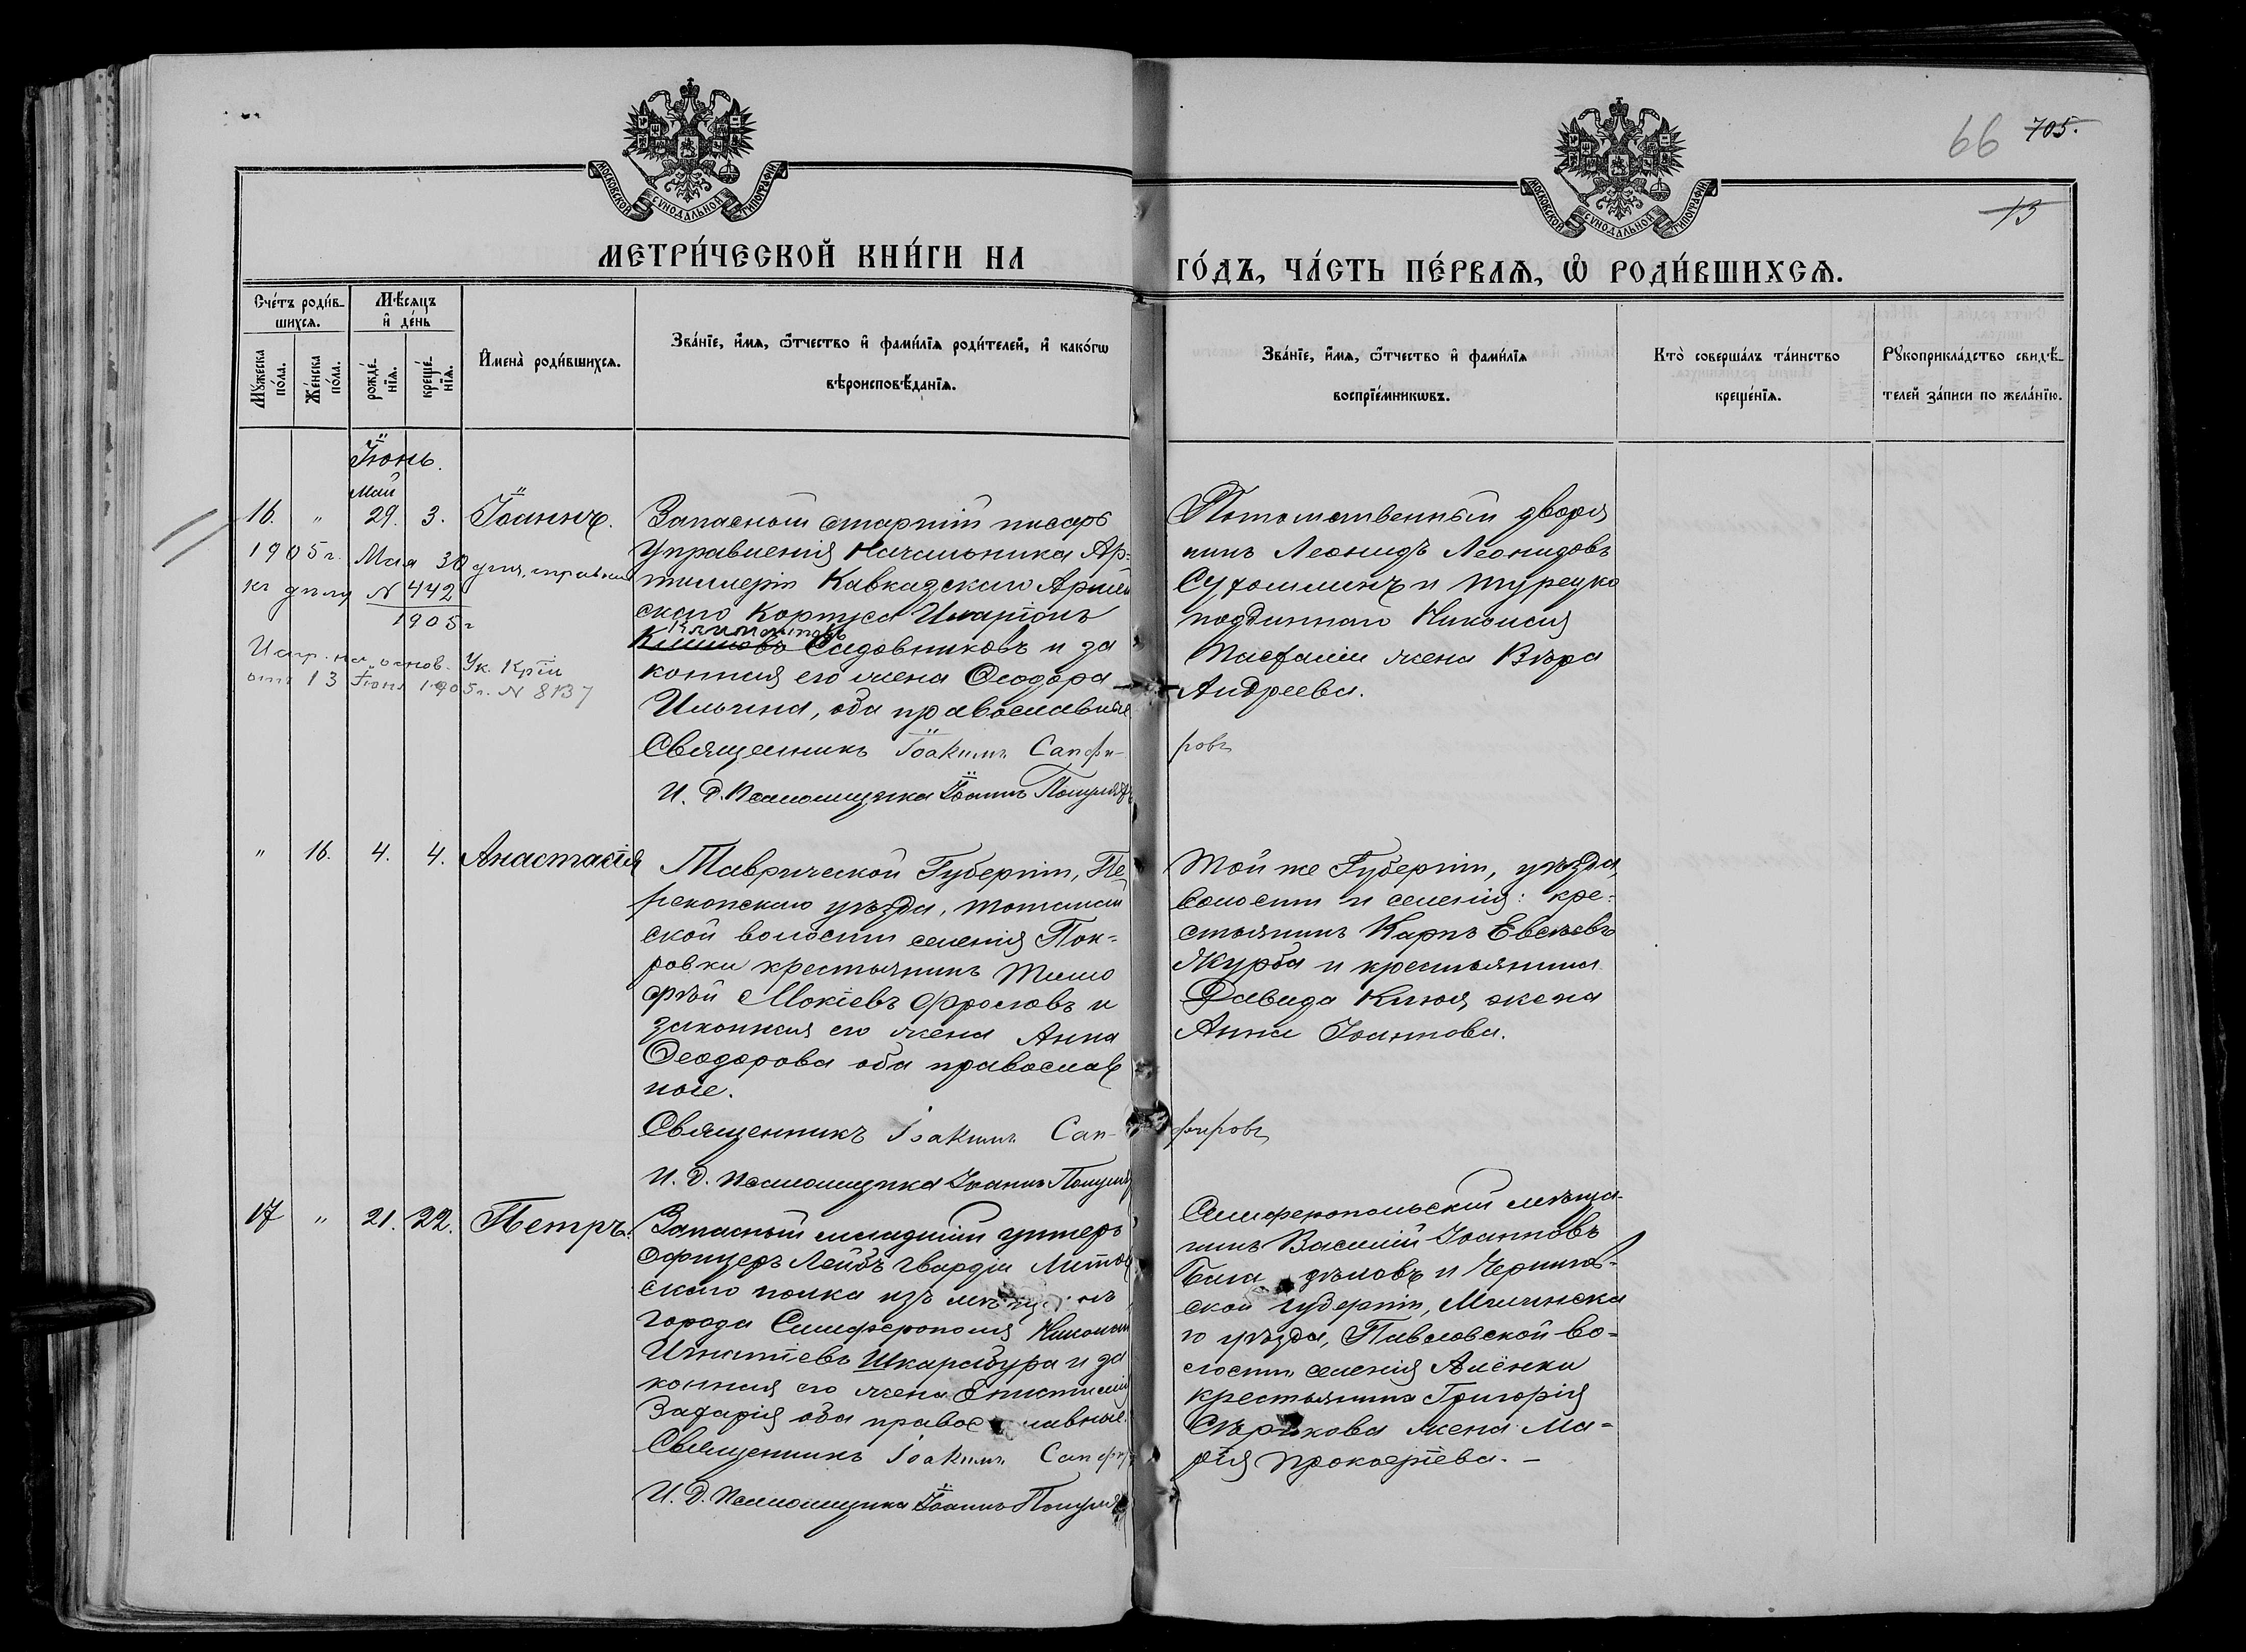 66 705.
13
МОСКОВСКОЙ СѴНОДАЛЬНОЙ ТИПОГРАФІИ
МОСКОВСКОЙ СѴНОДАЛЬНОЙ ТИПОГРАФІИ
МЕТРИ́ЧЕСКОЙ КНИ́ГИ НА ГО́ДЪ, ЧА́СТЬ ПЕ́РВАѦ, Ѡ РОДИ́ВШИХСѦ.
Сче́тъ роди́в-
шихсѧ.
Мѣ́сѧцъ
и҆ де́нь
Мꙋ́жеска
по́ла.
Же́нска
по́ла.
рожде́-
нїѧ.
креще́-
нїѧ.
И҆мена̀ роди́вшихсѧ.
Зва́нїе, и҆́мѧ, ѻ҆́тчество и҆ фами́лїѧ роди́телей, и҆ како́гѡ
вѣроисповѣ́данїѧ.
Зва́нїе, и҆́мѧ, ѻ҆́тчество и҆ фами́лїѧ
воспрїе́мникѡвъ.
Кто̀ соверша́лъ та́инство
креще́нїѧ.
Рꙋкоприкла́дство свидѣ́-
телей за́писи по жела́нїю.
Іюнь.
Май
16. " 29. 3. Іоаннъ.
1905 г. Мая 30 дня, справка
къ дѣлу N 442
1905 г
Испр. на основ. Ук. Крiи
отъ 13 Іюня 1905 г. N 8137
Запасный старшій писарь
Управленія Начальника Ар-
тиллеріи Кавказскаго Армей
скаго Корпуса Иларіонъ
Климентовъ
Климовъ Садовниковъ и за
конная его жена Ѳеодора
Ильина, оба православные
Потомственный дворя
нинъ Леонидъ Леонидовъ
Сухомлинъ и турецко
подданнаго Николая
Пасхали жена Вѣра
Андреева.
Священникъ Іоакимъ Сапфи-
ровъ
И. Д. Псаломщика Іоаннъ
" 16. 4. 4. Анастасія
Таврической Губерніи, Пе
рекопскаго уѣзда, Тотанай
ской волости селенія Пок-
ровки крестьянинъ Тимо
фѣй Мокіевъ Фроловъ и
законная его жена Анна
Ѳеодорова оба православ
ные.
Той же Губерніи, уѣзда,
волости и селенія: кре-
стьянинъ Карпъ Евсѣевъ
Журба и крестьянина
Давида Клюя жена
Анна Іоаннова.
Священникъ Іоакимъ Сап-
фировъ
И. Д. Псаломщика Іоаннъ
17 " 21. 22. Петръ.
Запасный младшій унтеръ
Офицеръ Лейбъ Гвардіи Литов
скаго полка изъ
города Симферополя Николай
Игнатіевъ Шкарабура и за
конная его жена Епистимія
Захарія оба православные.
Симферопольскій мѣща-
нинъ Василій Іоанновъ
Черниг-
ской губерніи, Мглинска
го уѣзда, Павловской во-
лости, селенія Алёнки
крестьянина Григорія
Сѣрикова жена Ма-
рія Прокофіева. -
Священникъ Іоакимъ Сапфир
И. Д. Псаломщика Іоаннъ